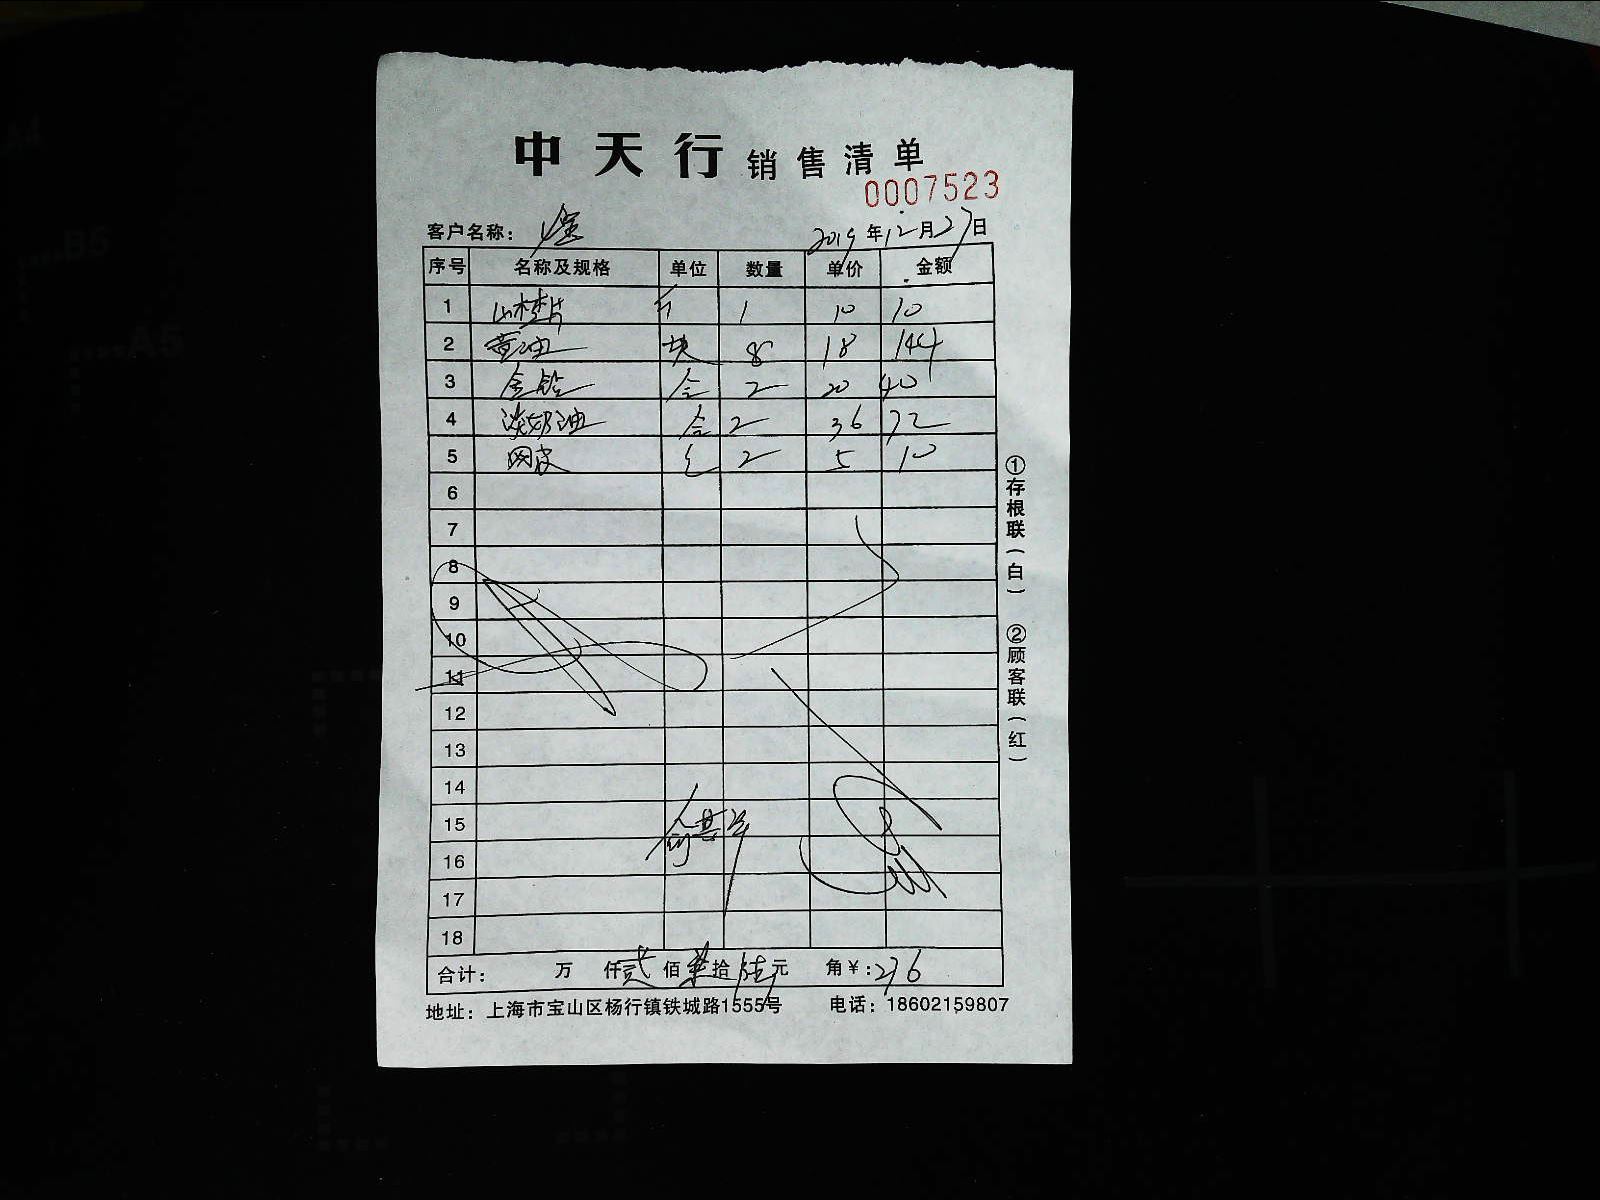 中天行 销售清单
0007523
客户名称：
2019年12月27日
序号 名称及规格 单位 数量 单价 金额
1 山楂片 1 10 10
2 黄油 块 8 18 144
3 合 2 20 40
4 淡奶油 合 2 36 72
5 网皮 包 2 5 10
6
7
8
9
10
11
12
13
14
15
16
17
18
合计： 万 仟贰佰柒拾陆元 角￥:276
地址：上海市宝山区杨行镇铁城路1555号 电话：18602159807
①存根联(白) ②顾客联(红)